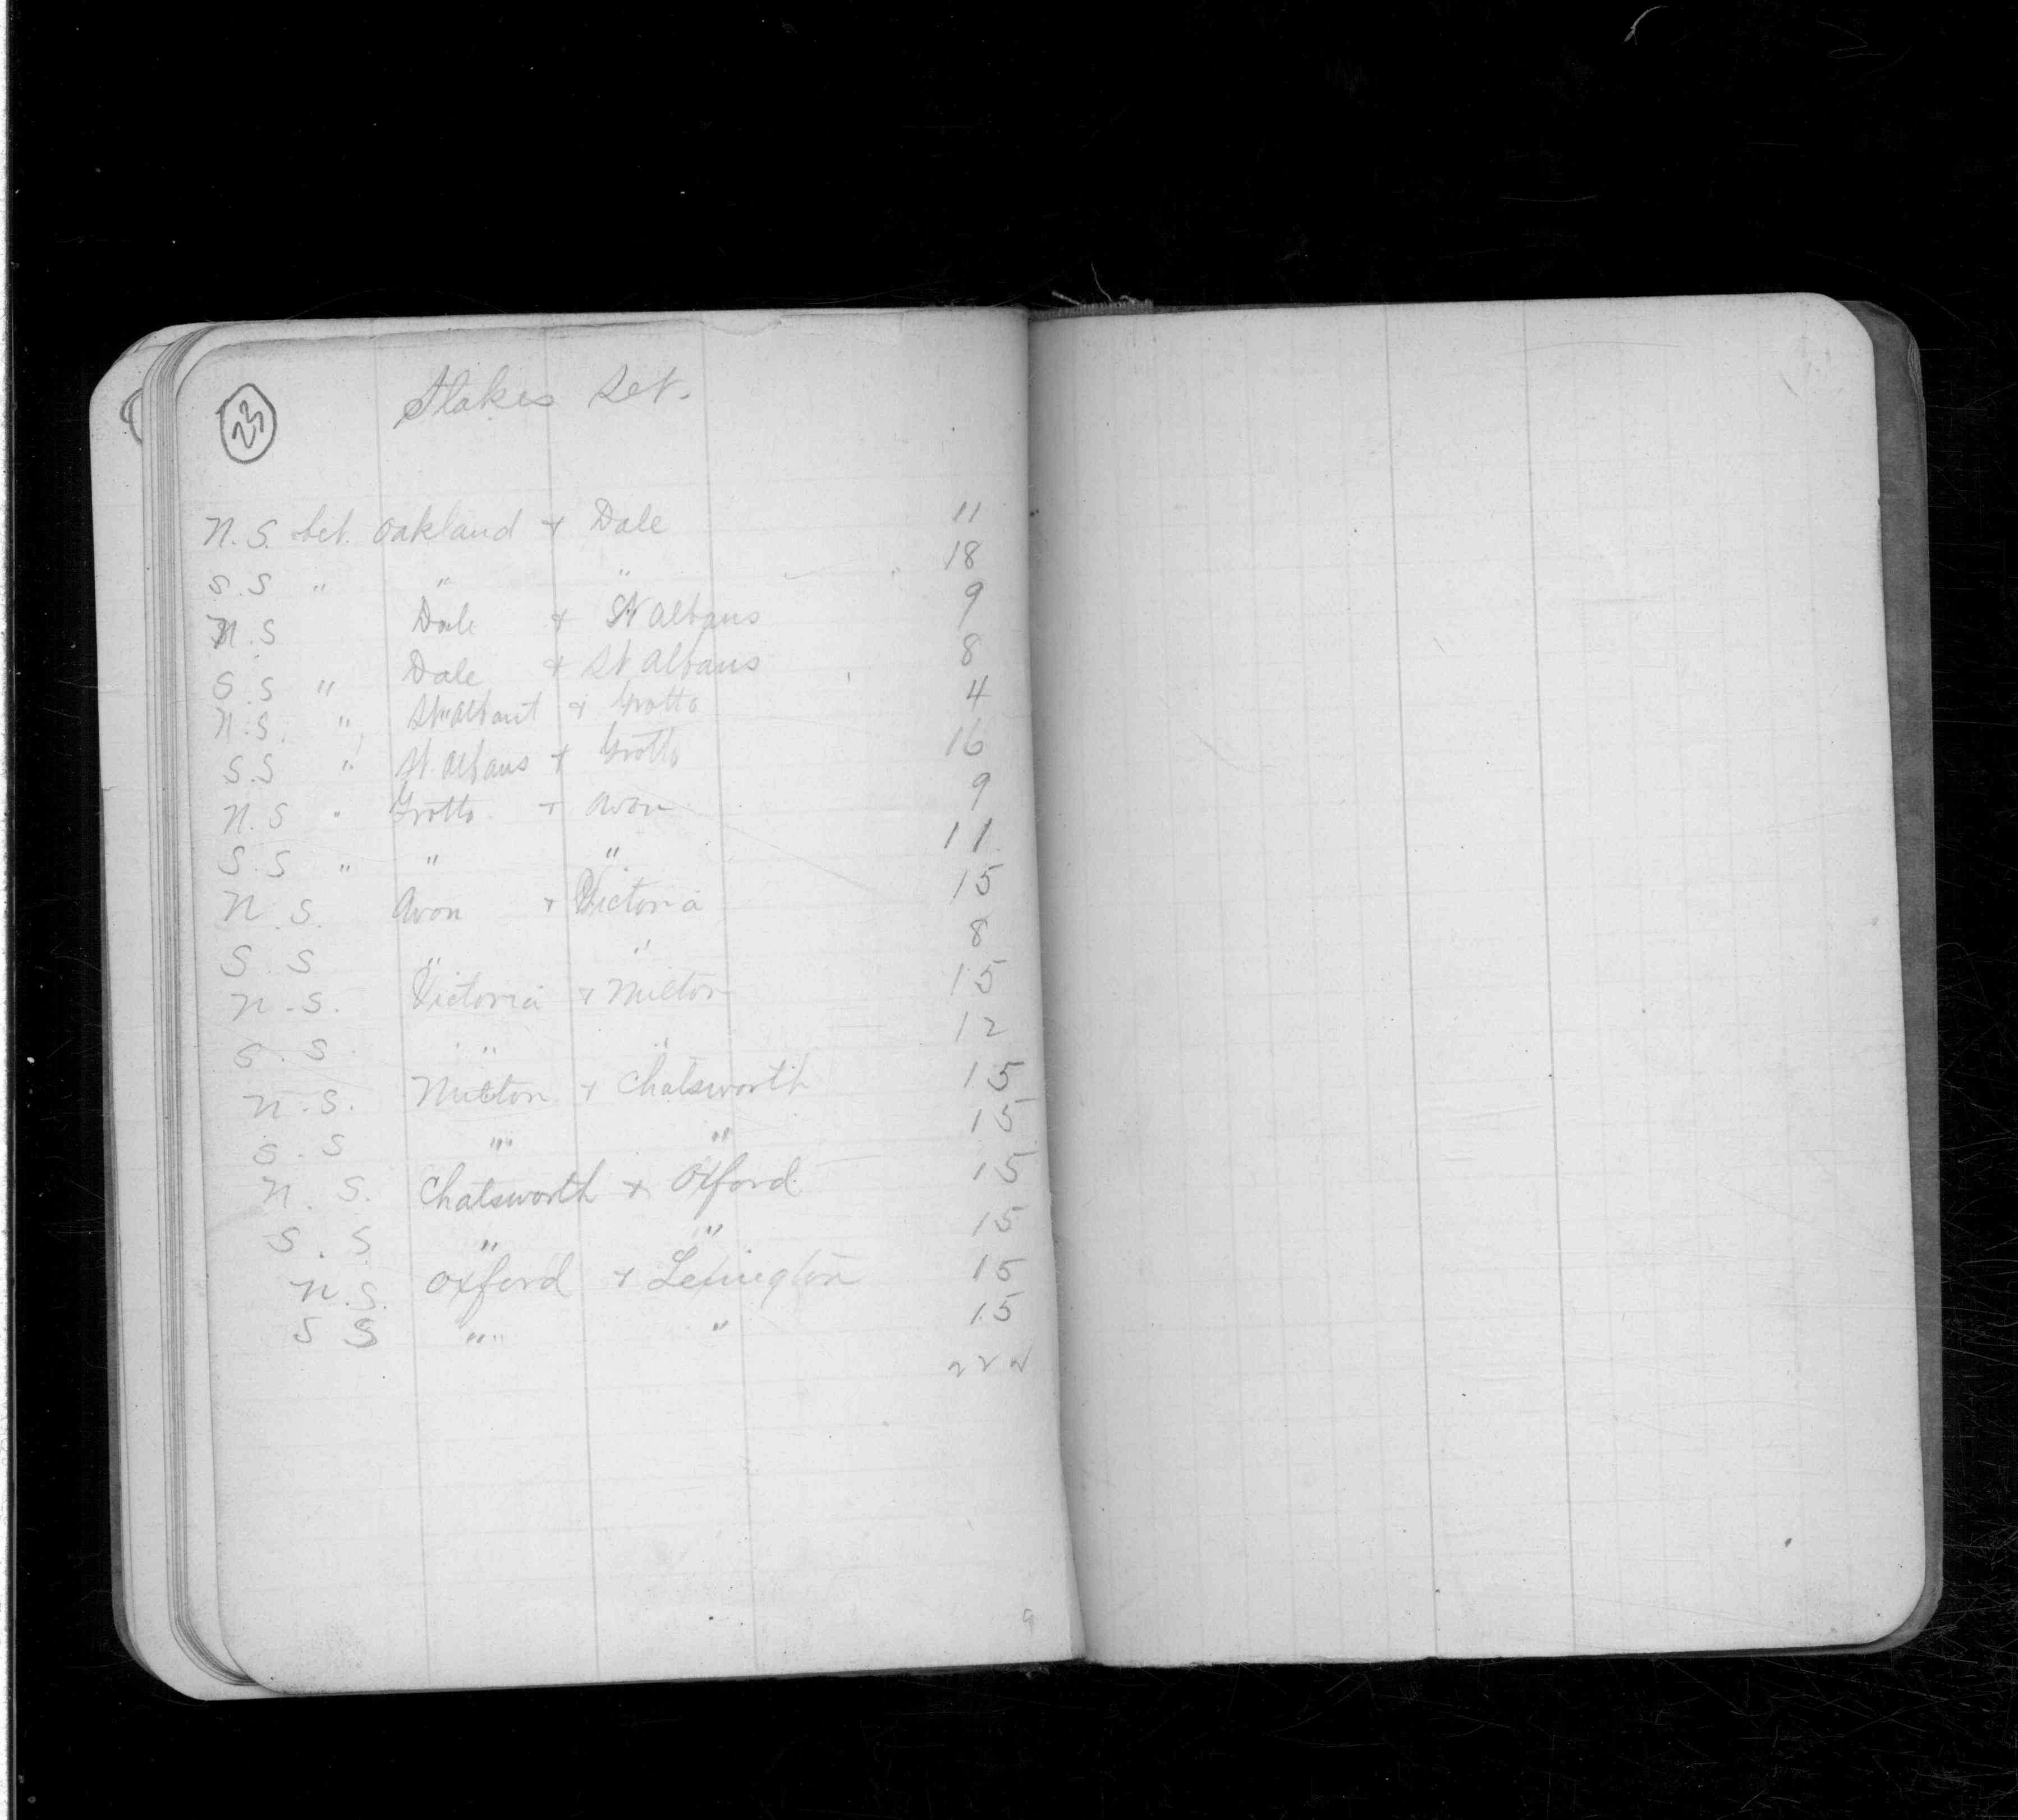 23
Stakes Set.
N.S. bet. Oakland & Dale 11
S.S " " " 18
N.S Dale & St Albans 9
S.S " Dale & St Albans 8
N.S. " St Albans & Grotto 4
S.S " St. Albans & Grotto 16
N.S " Grotto & Avon 9
S.S " " " 11
N.S. Avon & Victoria 15
S.S " " 8
N.S. Victoria & Milton 15
S.S " " 12
N.S. Milton & Chatsworth 15
S.S " " 15
N.S. Chatsworth & Oxford 15
S.S " " 15
N.S. Oxford & Lexington 15
S S " " 15
9